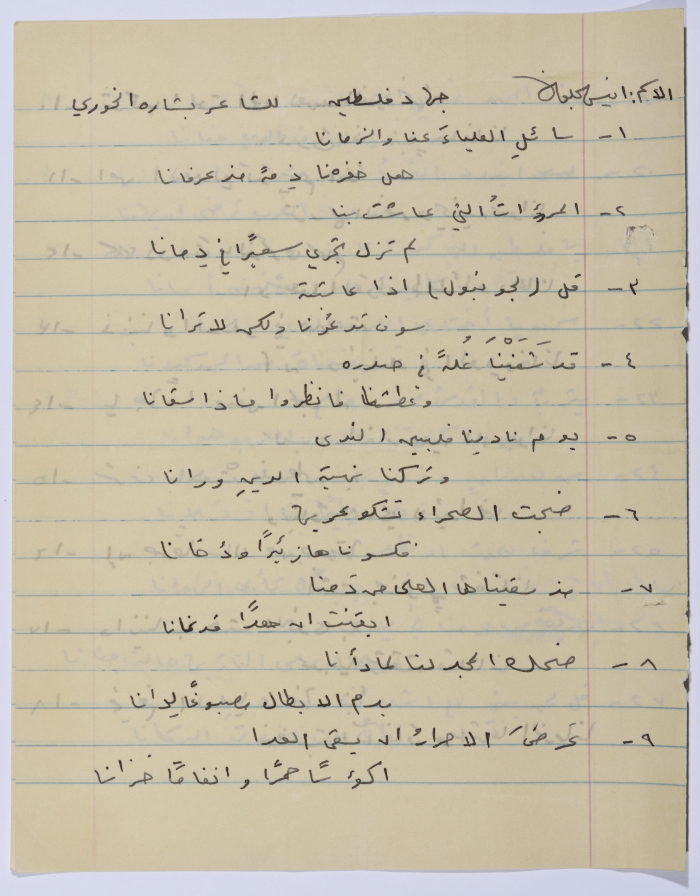 الاسم: انيس
جهاد فلسطين للشاعر بشاره الخوري
١- سائلي العلياءَ عنا والزمانا
هل خفرنا ذمةً مذ عرفانا
٢- المروءاتُ التي عاشت بنا
لم تزل تجري سعيرًا في دمانا
٣- قل (لجونبول) اذا عاتبته
سوف تدعونا ولكن لا ترانا
٤- قد شَفَيْنَا غُلةً في صدره
وعطشنا فانظروا ماذا سقانا
٥- يوم نادينا فلبى الندى
وتركنا نهية الدين ورانا
٦- ضجت الصحراء تشكو عريها
فكسوناها زئيرًا ودخانا
٧- مذ سقيناها العلى من دمنا
ايقنت ان معدًا قد نمانا
٨- ضحك المجد لنا لما رأنا
بدم الابطال مصبوغًا لوانا
٩- عرضَ الاحرارُ ان يسقى العدا
اكؤسًا حمرًا وانغامًا حزانا